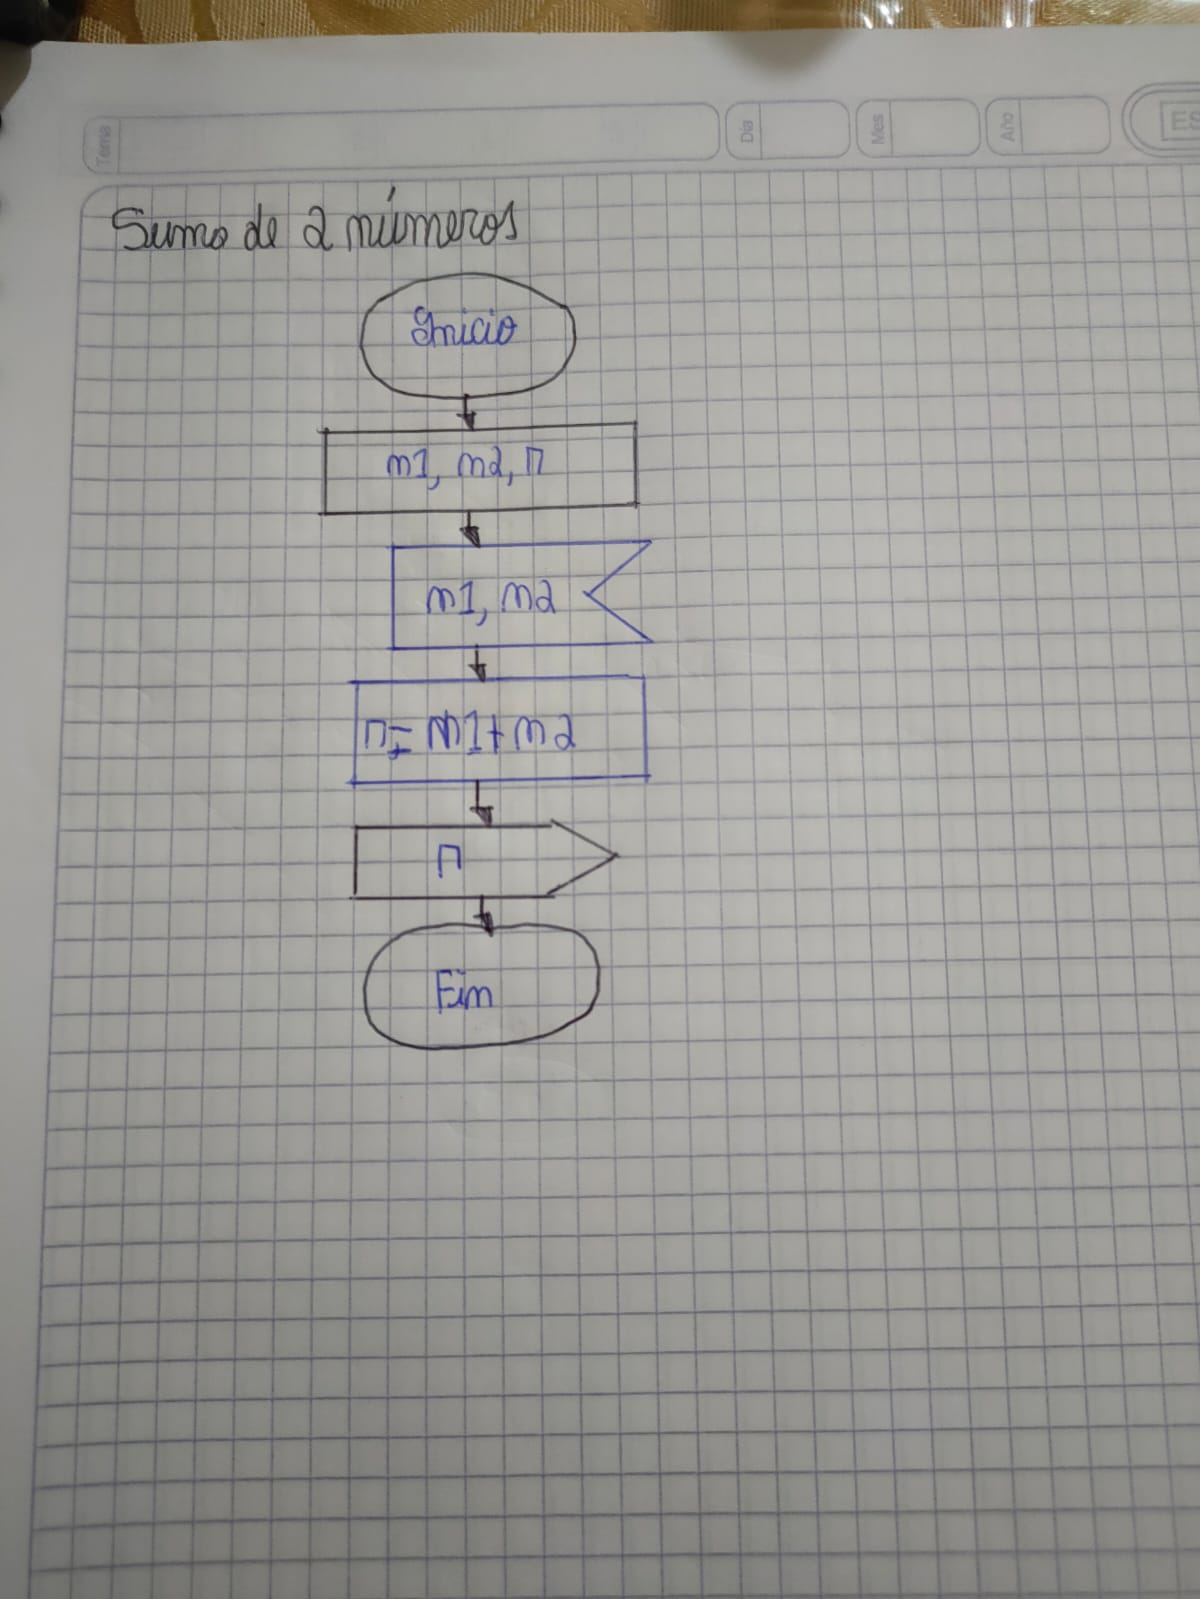 Tema Día Mes Año
Suma de 2 números
Inicio
n1, n2, r
n1, n2
r = n1+n2
r
Fin